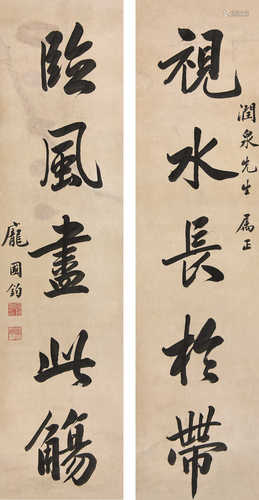 視水長於帶
潤泉先生屬正
臨風盡此觴
龐國鈞